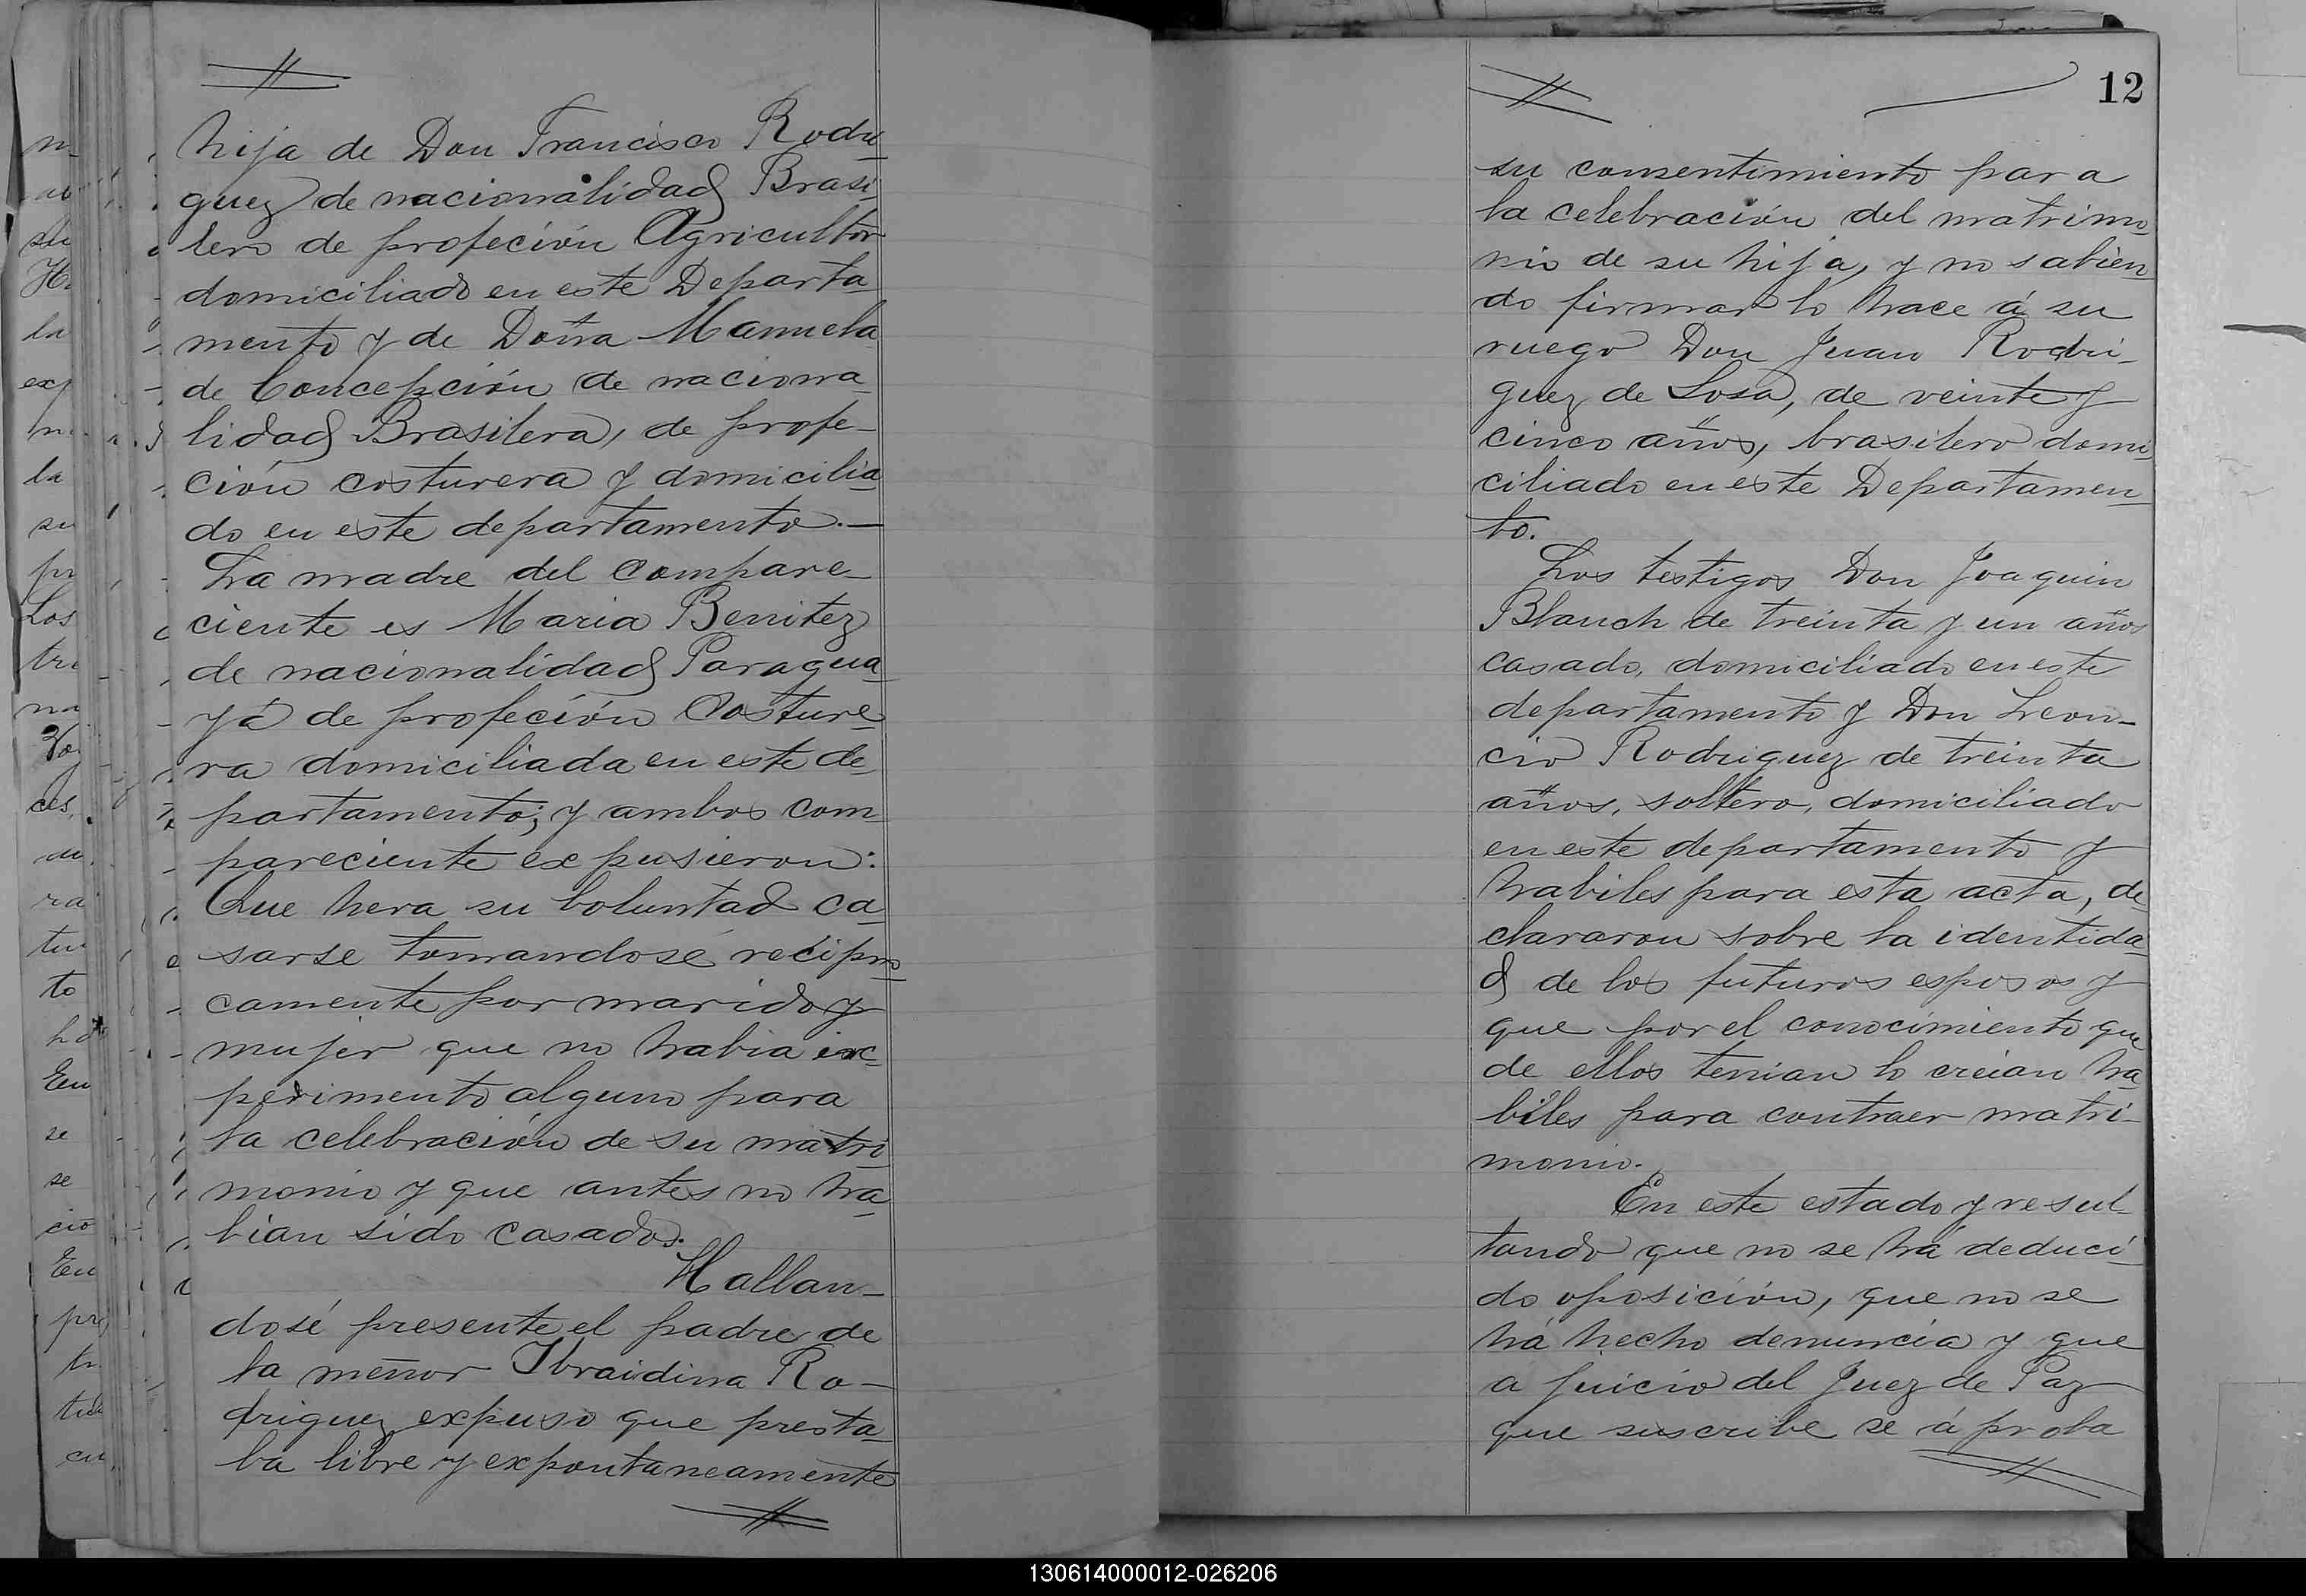 hija de Don Francisco Rodri
guez de nacionalidad Brasi
lero de profeción Agricultor
domiciliado en este Departa
mento y de Doña Manuela
de Concepción de naciona
lidad Brasilera, de profe-
ción costurera y domicilia
do en este departamento.—
La madre del compare-
ciente es Maria Benitez
de nacionalidad Paragua
yá de profeción Costure
ra domiciliada en este de
partamento; y ambos com
pareciente expusieron:
Que hera su boluntad ca
sarse tomandosé recipro
camente por marido y
mujer que no habia inc
perimento alguno para
la celebración de su matri
monio y que antes no ha
bian sido casados.
Hallan-
dosé presente el padre de
la menor Ibraidina Ro-
driguez expuso que presta
ba libre y expontaneamente
12
su consentimiento para
la celebración del matrimo
nio de su hija, y no sabien
do firmar lo hace á su
ruego Don Juan Rodri-
guez de Sosa, de veinte y
cinco años, brasilero domi
ciliado en este Departamen
to.
Los testigos Don Joaquin
Blanch de treinta y un años
casado, domiciliado en este
departamento y Don Leon-
cio Rodriguez de treinta
años, soltero, domiciliado
en este departamento y
habiles para esta acta, de
clararon sobre la identida
d de los futuros esposos y
que por el conocimiento que
de ellos tenian lo creian ha
biles para contraer matri-
monio.
En este estado y resul
tando que no se há deduci-
do oposición, que no se
há hecho denuncia y que
a juicio del Juez de Paz
que suscribe se á proba
130614000012-026206